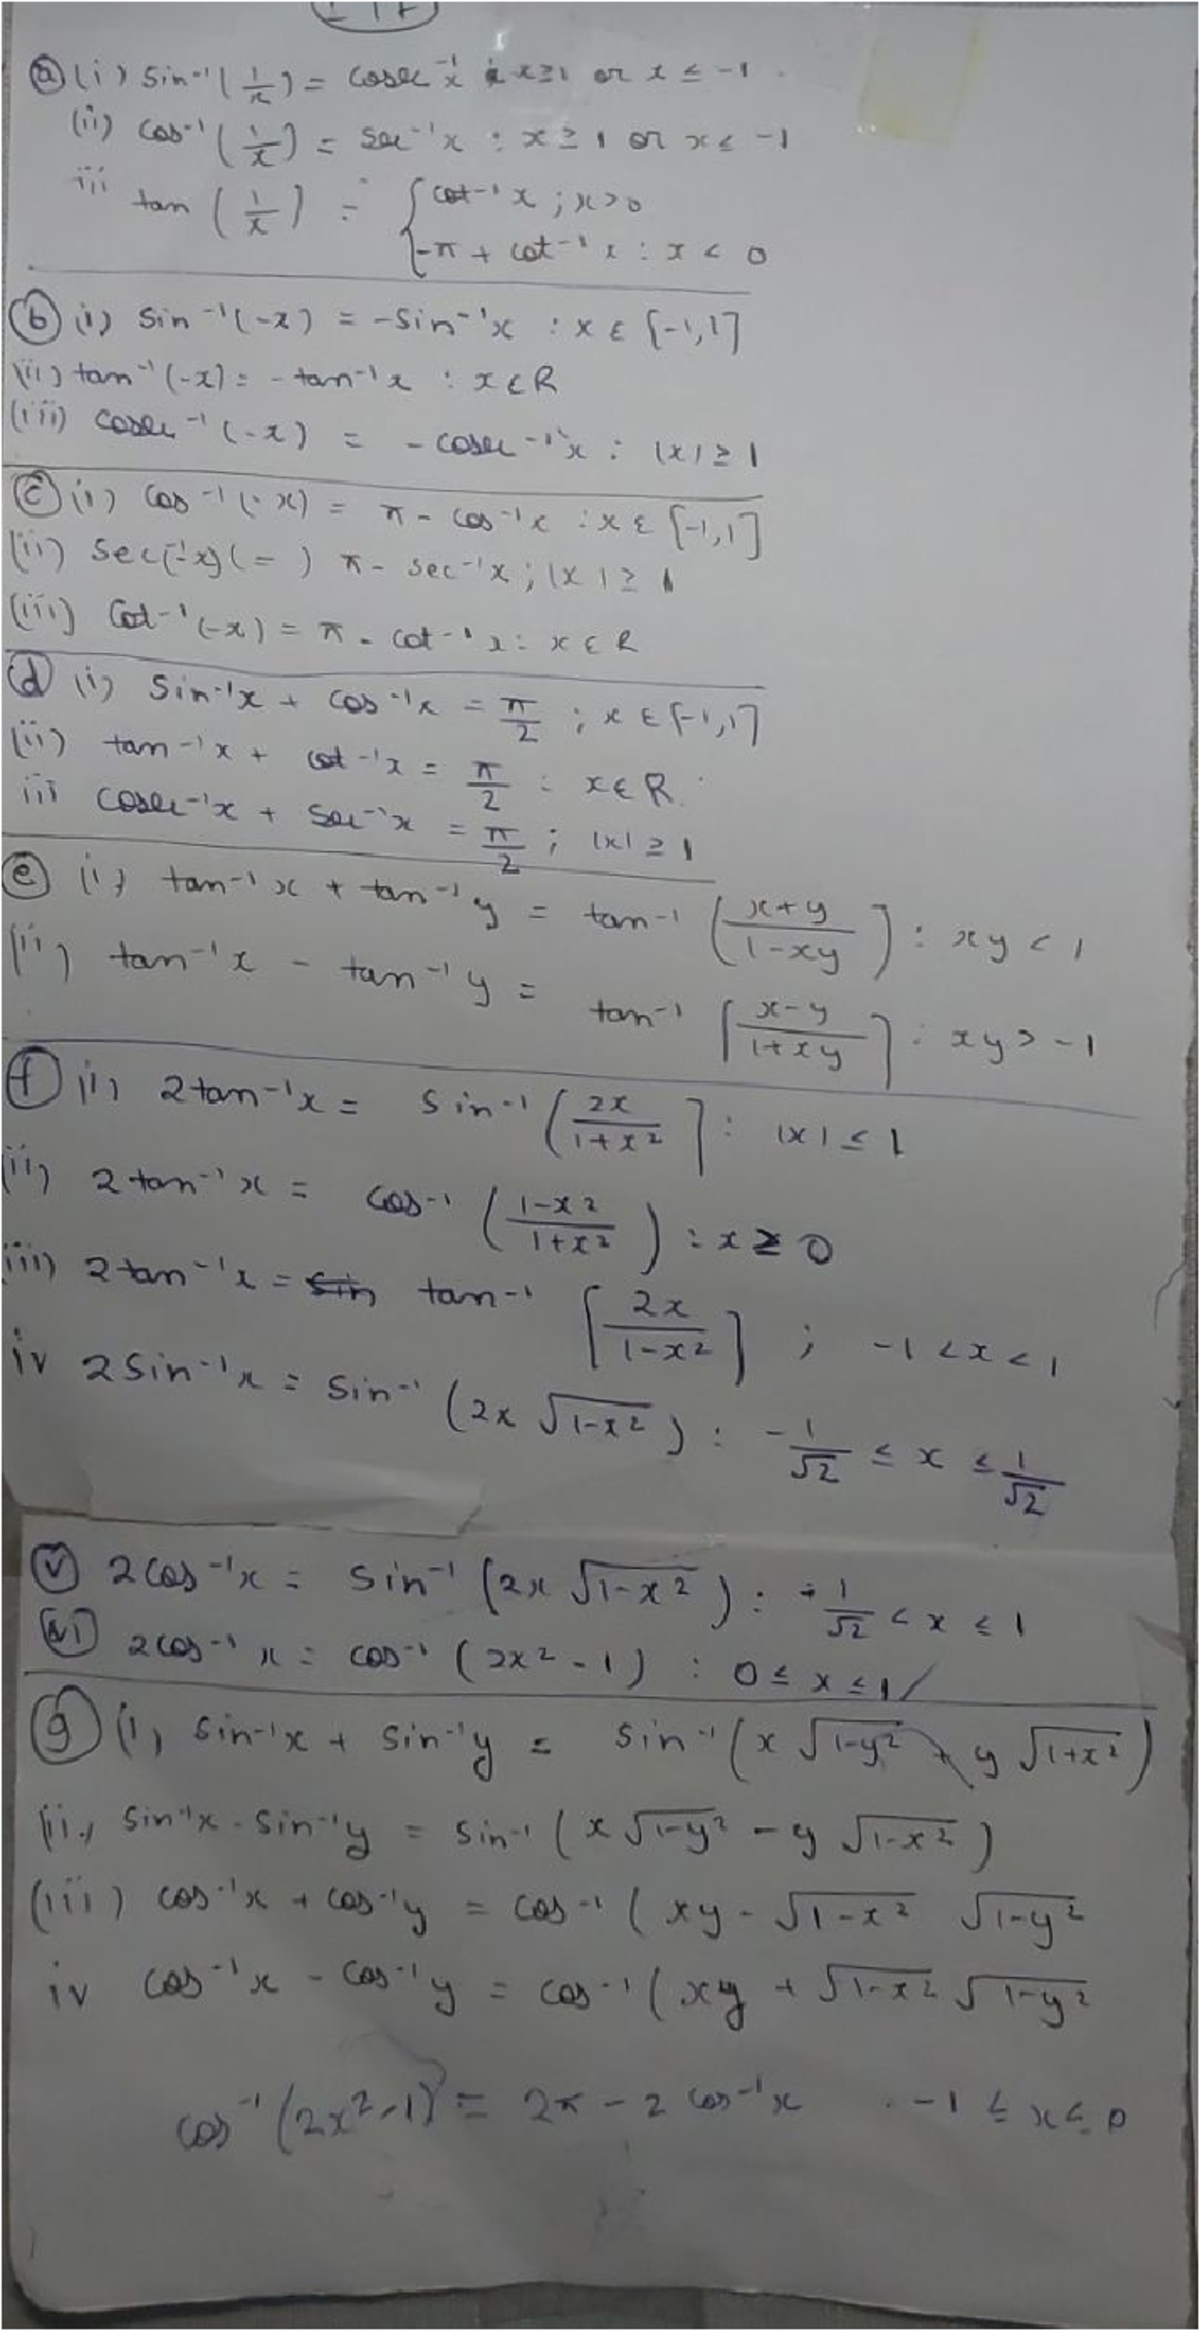 ITF
(a) (i) sin⁻¹(1/x) = cosec⁻¹x ; x≥1 or x ≤ -1
(ii) cos⁻¹(1/x) = sec⁻¹x : x ≥ 1 or x ≤ -1
iii tan (1/x) = { cot⁻¹x ; x>0
-π + cot⁻¹x : x < 0
(b) (i) sin⁻¹(-x) = -sin⁻¹x : x ∈ [-1,1]
(ii) tan⁻¹(-x) = -tan⁻¹x : x ∈ R
(iii) cosec⁻¹(-x) = -cosec⁻¹x : |x| ≥ 1
(c) (i) cos⁻¹(-x) = π - cos⁻¹x : x ∈ [-1,1]
(ii) sec(⁻¹x)(=) π - sec⁻¹x ; |x| ≥ 1
(iii) cot⁻¹(-x) = π - cot⁻¹x : x ∈ R
(d) (i) sin⁻¹x + cos⁻¹x = π/2 ; x ∈ [-1,1]
(ii) tan⁻¹x + cot⁻¹x = π/2 : x ∈ R
iii cosec⁻¹x + sec⁻¹x = π/2 ; |x| ≥ 1
(e) (i) tan⁻¹x + tan⁻¹y = tan⁻¹ [(x+y)/(1-xy)] : xy < 1
(ii) tan⁻¹x - tan⁻¹y = tan⁻¹ [(x-y)/(1+xy)] : xy > -1
(f) (i) 2tan⁻¹x = sin⁻¹ (2x/(1+x²)] : |x| ≤ 1
(ii) 2tan⁻¹x = cos⁻¹ ((1-x²)/(1+x²)) : x ≥ 0
(iii) 2tan⁻¹x = sin tan⁻¹ [2x/(1-x²)] ; -1 < x < 1
iv 2sin⁻¹x = sin⁻¹ (2x √(1-x²)) : -1/√2 ≤ x ≤ 1/√2
(v) 2cos⁻¹x = sin⁻¹ (2x √(1-x²)) : 1/√2 < x ≤ 1
(vi) 2cos⁻¹x = cos⁻¹ (2x² - 1) : 0 ≤ x ≤ 1
(g) (i) sin⁻¹x + sin⁻¹y = sin⁻¹ (x √(1-y²) + y √(1+x²))
(ii) sin⁻¹x - sin⁻¹y = sin⁻¹ (x √(1-y²) - y √(1-x²))
(iii) cos⁻¹x + cos⁻¹y = cos⁻¹ (xy - √(1-x²) √(1-y²)
iv cos⁻¹x - cos⁻¹y = cos⁻¹ (xy + √(1-x²) √(1-y²)
cos⁻¹(2x²-1) = 2π - 2cos⁻¹x . -1 ≤ x ≤ 0